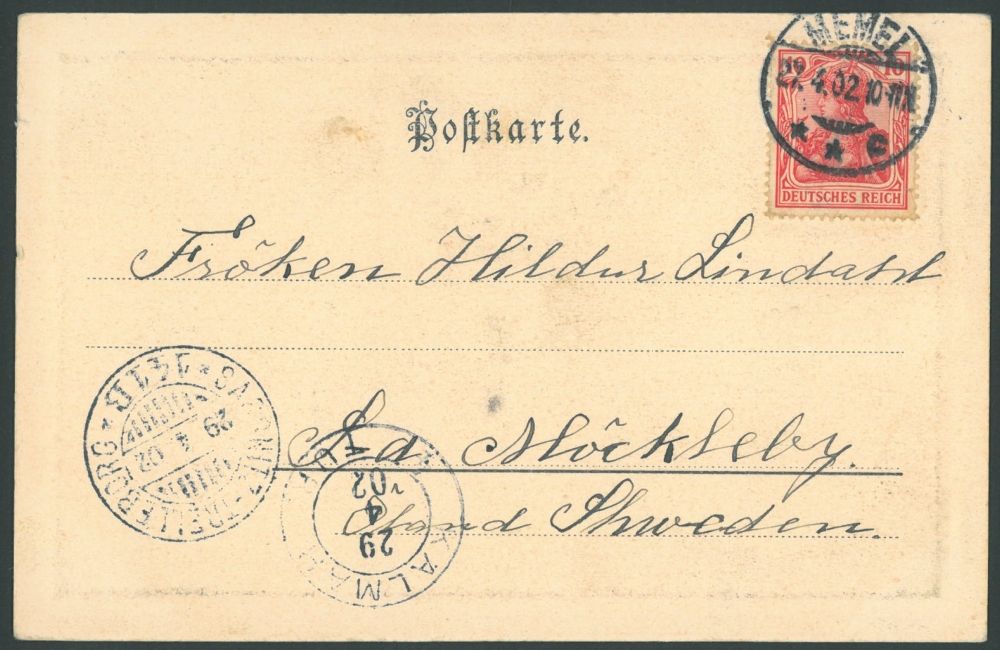 MEMEL
27. 4. 02 10-11
* * c
10 10
DEUTSCHES REICH
Postkarte.
Fröken Hildur Lindahl
Sd. Möckleby.
Öland Shweden.
SASSNITZ-TRELLEBORG
29 4 02
KALMAR
29
4
02